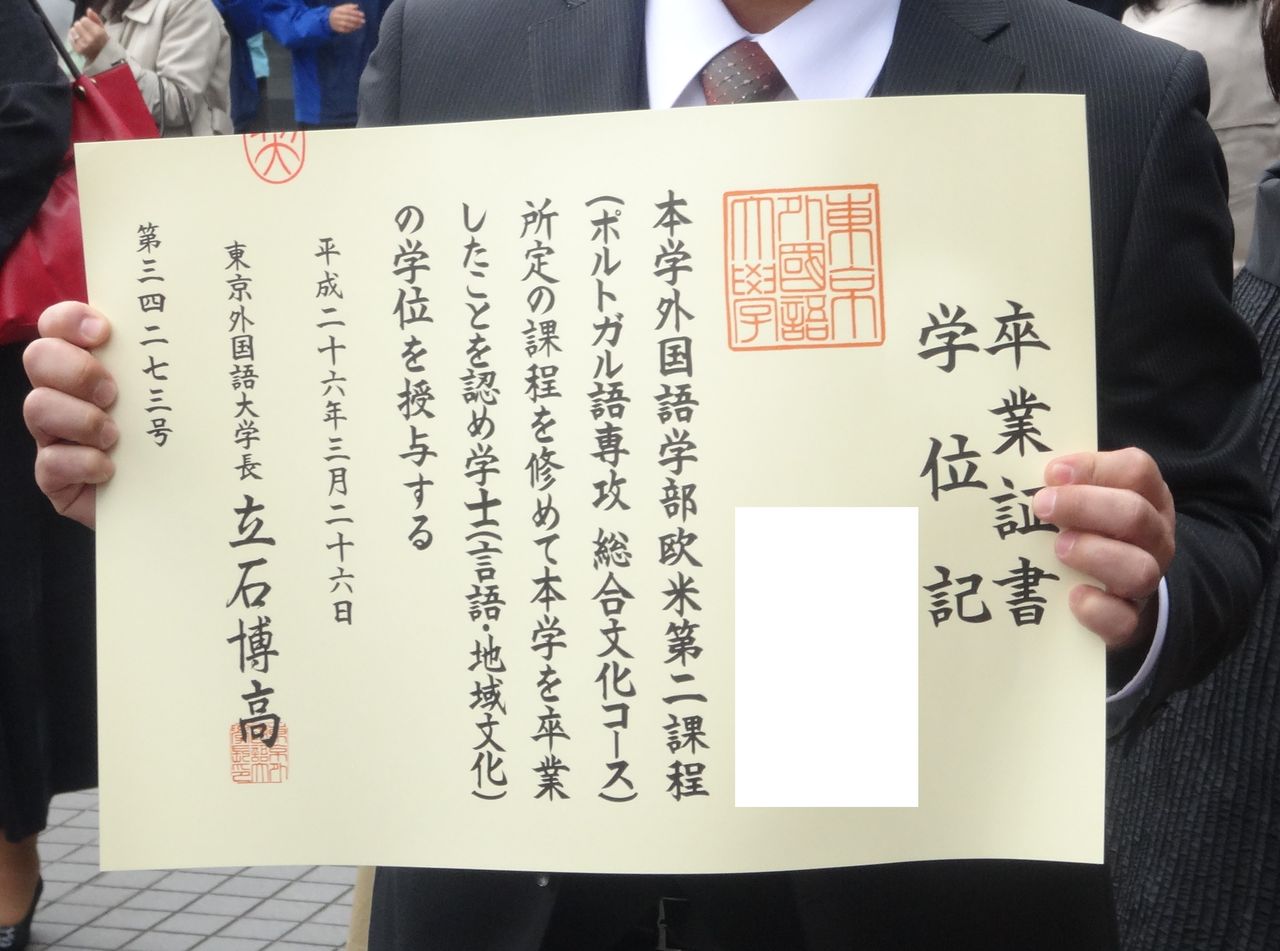 卒業証書
学位記
東京
外國語
大學
本学外国語学部欧米第二課程
(ポルトガル語専攻 総合文化コース)
所定の課程を修めて本学を卒業
したことを認め学士(言語・地域文化)
の学位を授与する
平成二十六年三月二十六日
東京外国語大学長 立石博高
第三四二七三号